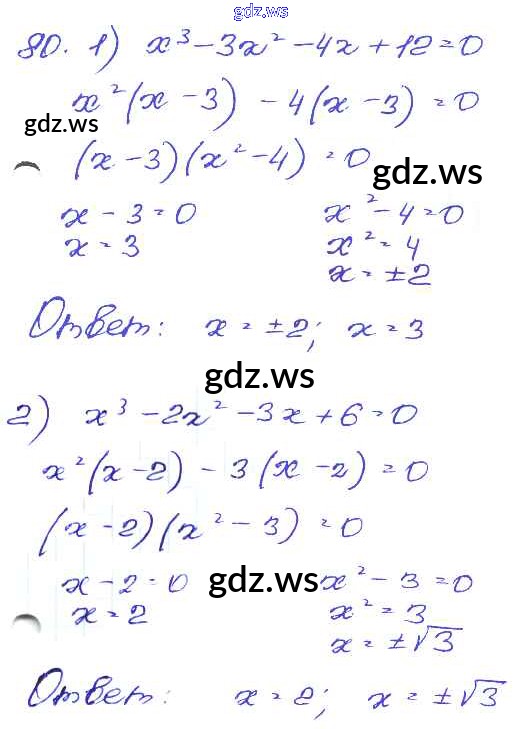 gdz.ws
80. 1) x³ - 3x² - 4x + 12 = 0
x²(x - 3) - 4(x - 3) = 0
gdz.ws
(x - 3)(x² - 4) = 0
gdz.ws
x - 3 = 0 x² - 4 = 0
x = 3 x² = 4
x = ±2
Ответ: x = ±2; x = 3
gdz.ws
2) x³ - 2x² - 3x + 6 = 0
x²(x - 2) - 3(x - 2) = 0
(x - 2)(x² - 3) = 0
x - 2 = 0 gdz.ws x² - 3 = 0
x = 2 x² = 3
x = ±√3
Ответ: x = 2; x = ±√3
gdz.ws